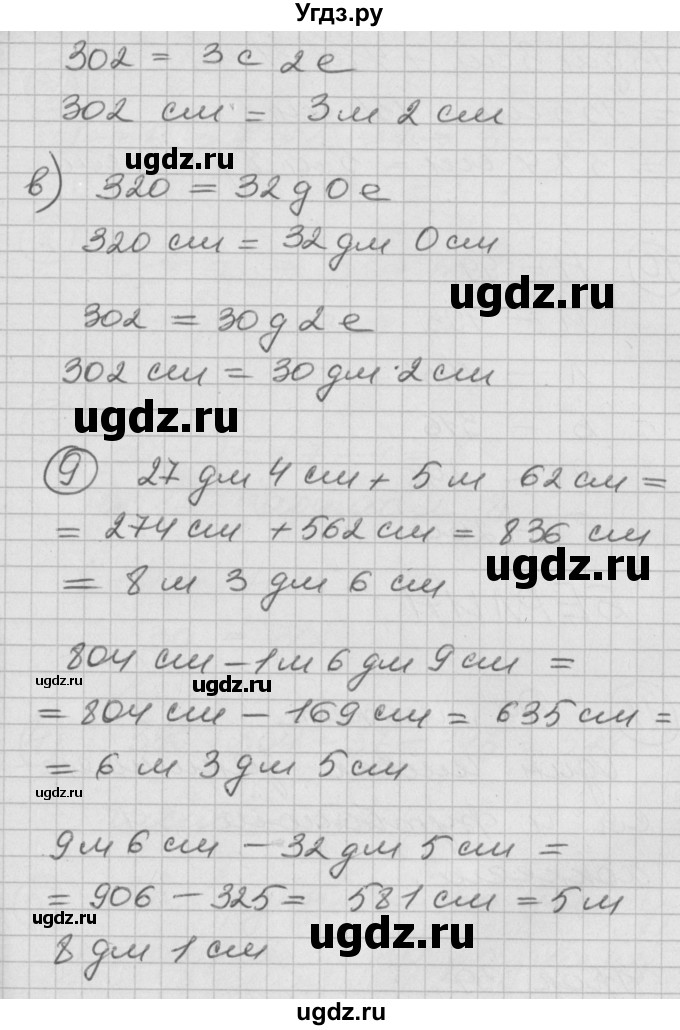 Угдз.ру
302 = 3с 2е
302 см = 3м 2см
ugdz.ru
в) 320 = 32д 0е
320 см = 32дм 0см
ugdz.ru
302 = 30д 2е
302 см = 30дм 2см
ugdz.ru
9 27 дм 4 см + 5 м 62 см =
= 274 см + 562 см = 836 см
ugdz.ru
= 8 м 3 дм 6 см
804 см - 1м 6 дм 9 см =
ugdz.ru
ugdz.ru
= 804 см - 169 см = 635 см =
= 6 м 3 дм 5 см
ugdz.ru
9м 6 см - 32 дм 5 см =
= 906 - 325 = 581 см = 5 м
ugdz.ru
ugdz.ru
8 дм 1 см
ugdz.ru